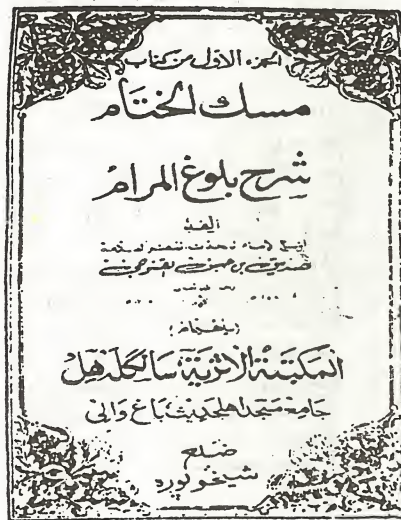 الجزء الاول من كتاب
مسك الختام
شرح بلوغ المرام
صديق بن حسن القنوجي
(باهتمام)
المكتبة الاثرية سانگله هل
جامع مسجد اهلحديث باغ والى
ضلع
شيخوپوره